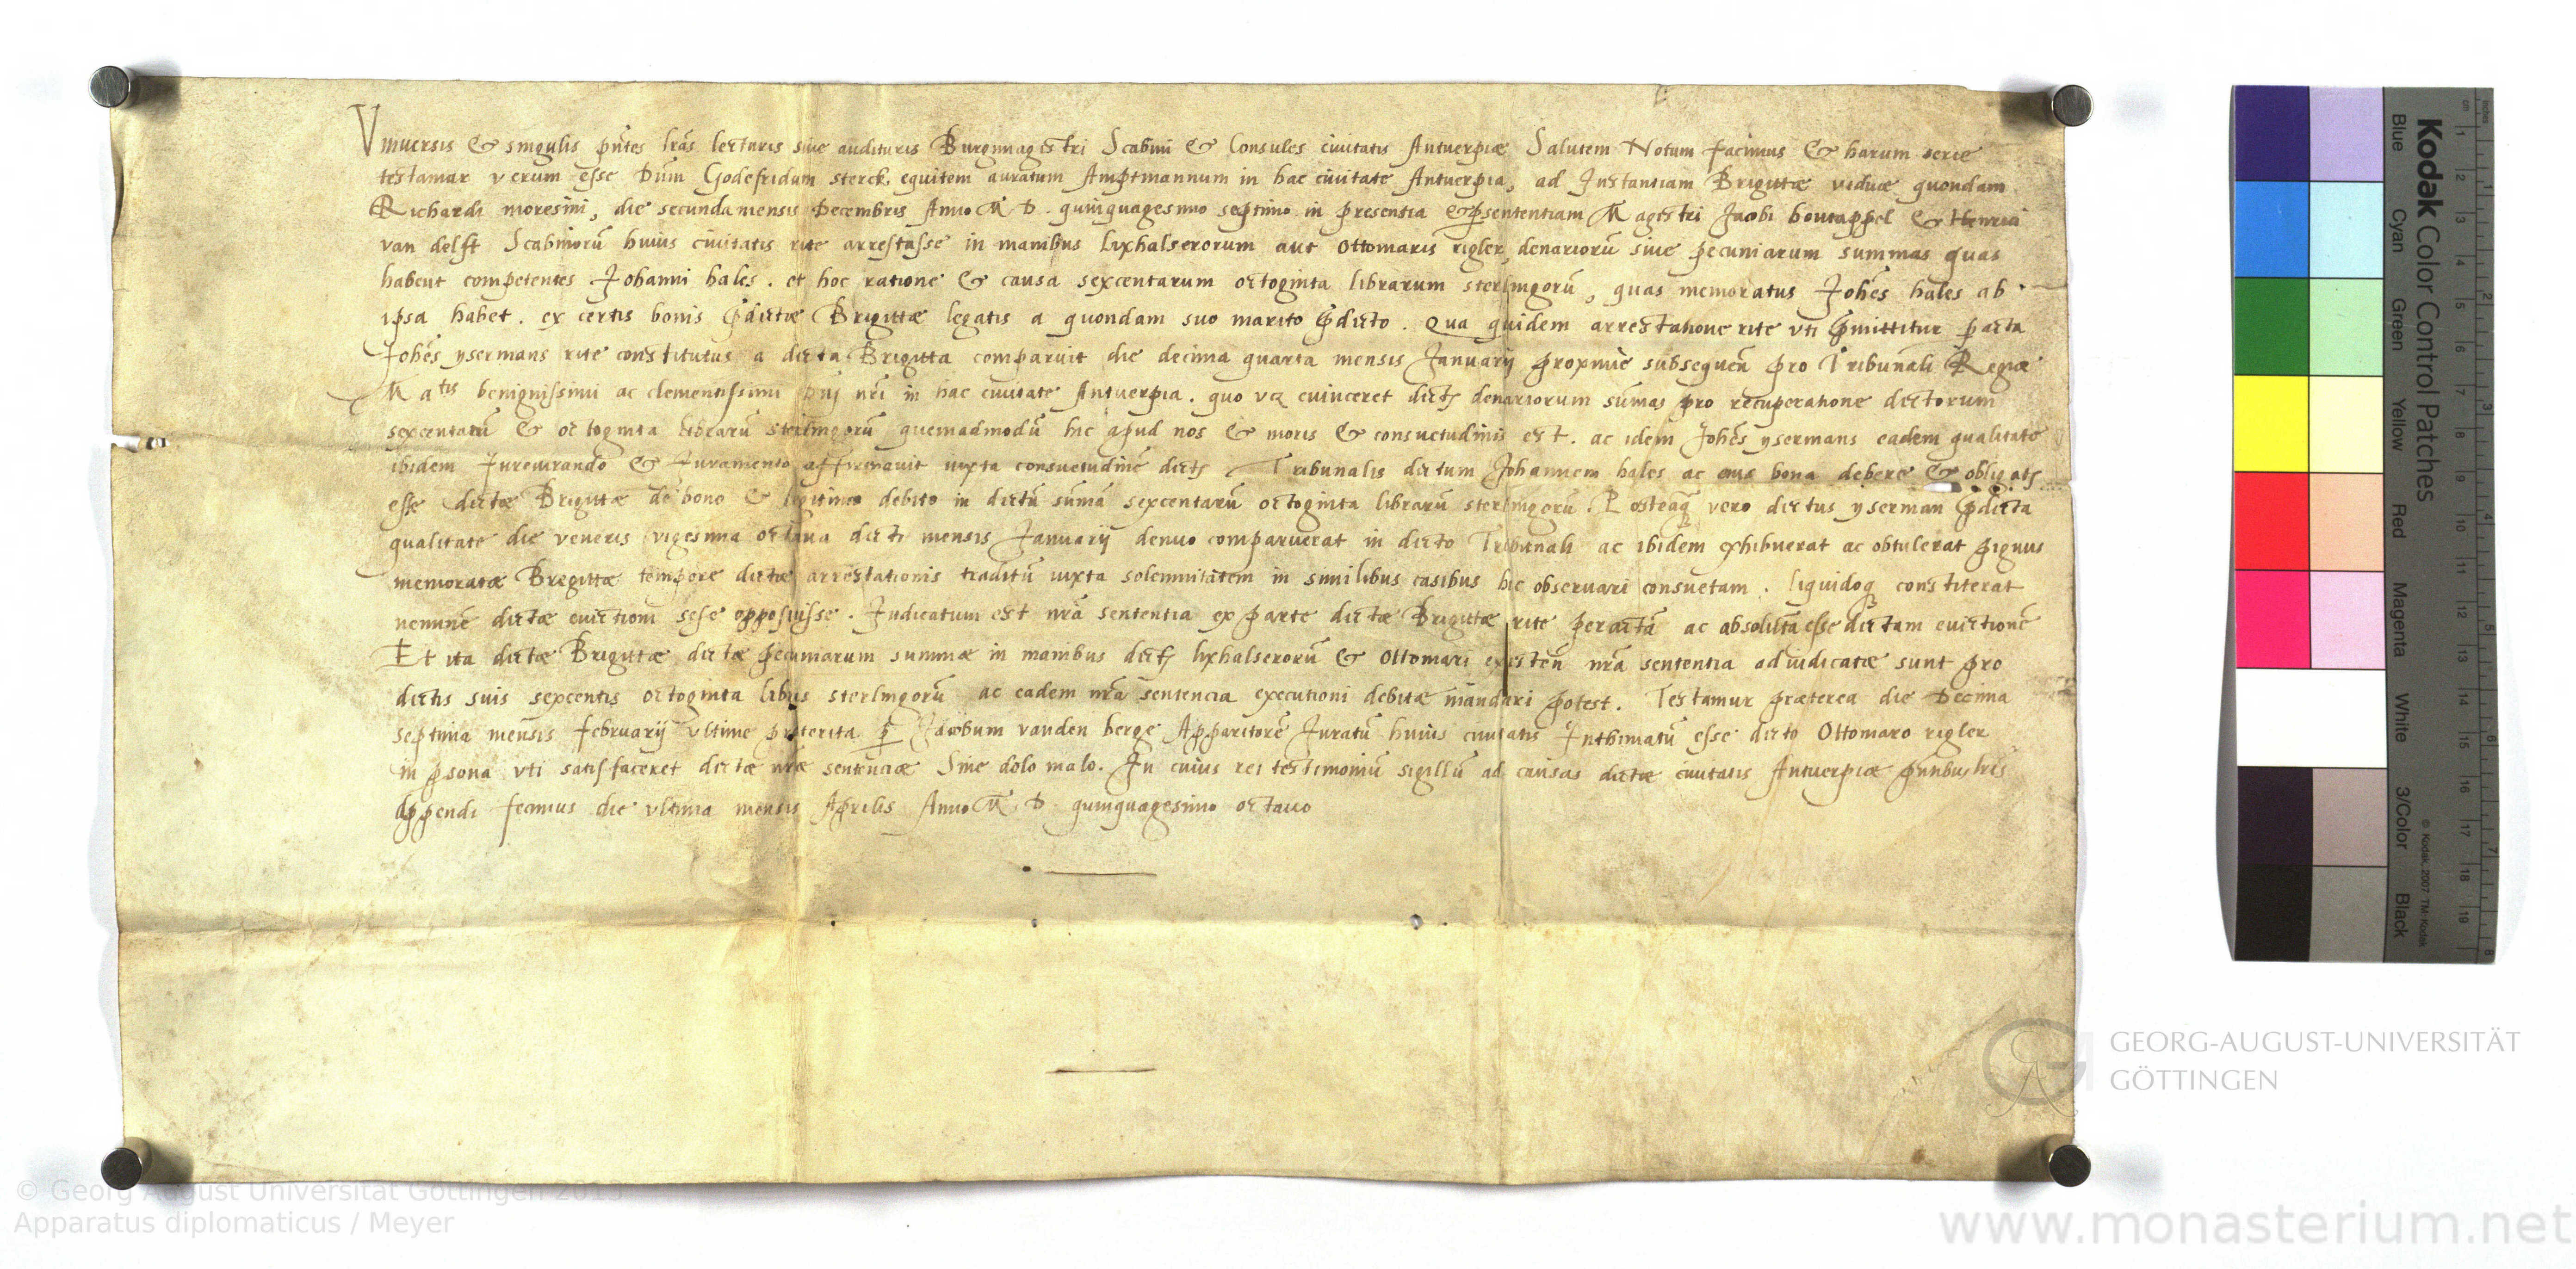 Vniuersis & singulis pñtes lrãs lecturis siue audituris Burgimagistri Scabini & Consules ciuitatis Antuerpiæ Salutem Notum facimus & harum serie
testamur verum esse Dũm Godefridum sterck, equitem auratum Amptmannum in hac ciuitate Antuerpia, ad Instantiam Brigittæ viduæ quondam
Richardi moresini, die secunda mensis Decembris Anno M. D. quinquagesimo septimo in presentia & Magistri Jacobi bouttappel & Henrici
van delft Scabinorũ huius ciuitatis rite arrestasse in manibus lixhalserorum aut Ottomaris rigler, denariorũ siue pecuniarum summas quas
habent competentes Johanni hales. et hoc ratione & causa sexcentarum octoginta librarum sterlingorũ, quas memoratus Johẽs hales ab
ipsa habet. ex certis bonis pdictæ Brigittæ legatis a quondam suo marito pdicto. Qua quidem arrestatione rite vti pmittitur facta
Johẽs ysermans rite constitutus a dicta Brigitta comparuit die decima quarta mensis Januarij proxime subsequeñ pro Tribunali Regiæ
Matis benignissimi ac clementissimi Dnj nrĩ in hac ciuitate Antuerpia. quo euinceret denariorum sũmas pro recuperatione dictorum
sexcentarũ & octoginta librarũ sterlingorũ quemadmodũ hic apud nos & moris & consuetudinis est. ac idem Johẽs ysermans eadem qualitate
ibidem Jureiurando & Juramento affirmauit iuxta consuetudinẽ Tribunalis dictum Johannem hales ac eius bona debere &
esse dictæ Brigittæ de bono & legitimo debito in dictũ sũmã sexcentarũ octoginta librarũ sterlingorũ. Posteaq vero dictus yserman pdicta
qualitate die veneris vigesima octaua dicti mensis Januarij denuo comparuerat in dicto Tribunali ac ibidem exhibuerat ac obtulerat pignus
memoratæ Bregittæ tempore dictæ arrestationis traditũ iuxta solemnitatem in similibus casibus hic obseruari consuetam. liquidoq constiterat
neminẽ dictæ euictioni sese opposuisse. Judicatum est nrã sententia ex parte dictæ Brigittæ rite peractã ac absolutã esse dictam euictionẽ
Et ita dictæ Brigittæ dictæ pecuniarum summæ in manibus lixhalserorũ & Ottomari existeñ nrã sententia adiudicatæ sunt pro
dictis suis sexcentis octoginta libris sterlingorũ ac eadem nrã sentencia executioni debitæ mandari potest. Testamur præterea die Decima
septima mensis februarij vltime preterita p Jacobum vanden berge Apparitorẽ Juratũ huius ciuitatis Inthimatũ esse dicto Ottomaro rigler
in psona vti satisfaceret dictæ nræ sentenciæ Sine dolo malo. In cuius rei testimoniũ sigillũ ad causas dictæ ciuitatis Antuerpiæ
Appendi fecimus die vltima mensis Aprilis Anno M. D. quinquagesimo octauo
Kodak Color Control Patches
Blue Cyan Green Yellow Red Magenta White 3/Color Black
© Kodak, 2007 TM: Kodak
cm 1 2 3 4 5 6 7 8 9 10 11 12 13 14 15 16 17 18 19
inches 1 2 3 4 5 6 7 8
GEORG-AUGUST-UNIVERSITÄT
GÖTTINGEN
© Georg August Universität Göttingen 2013
Apparatus diplomaticus / Meyer
www.monasterium.net